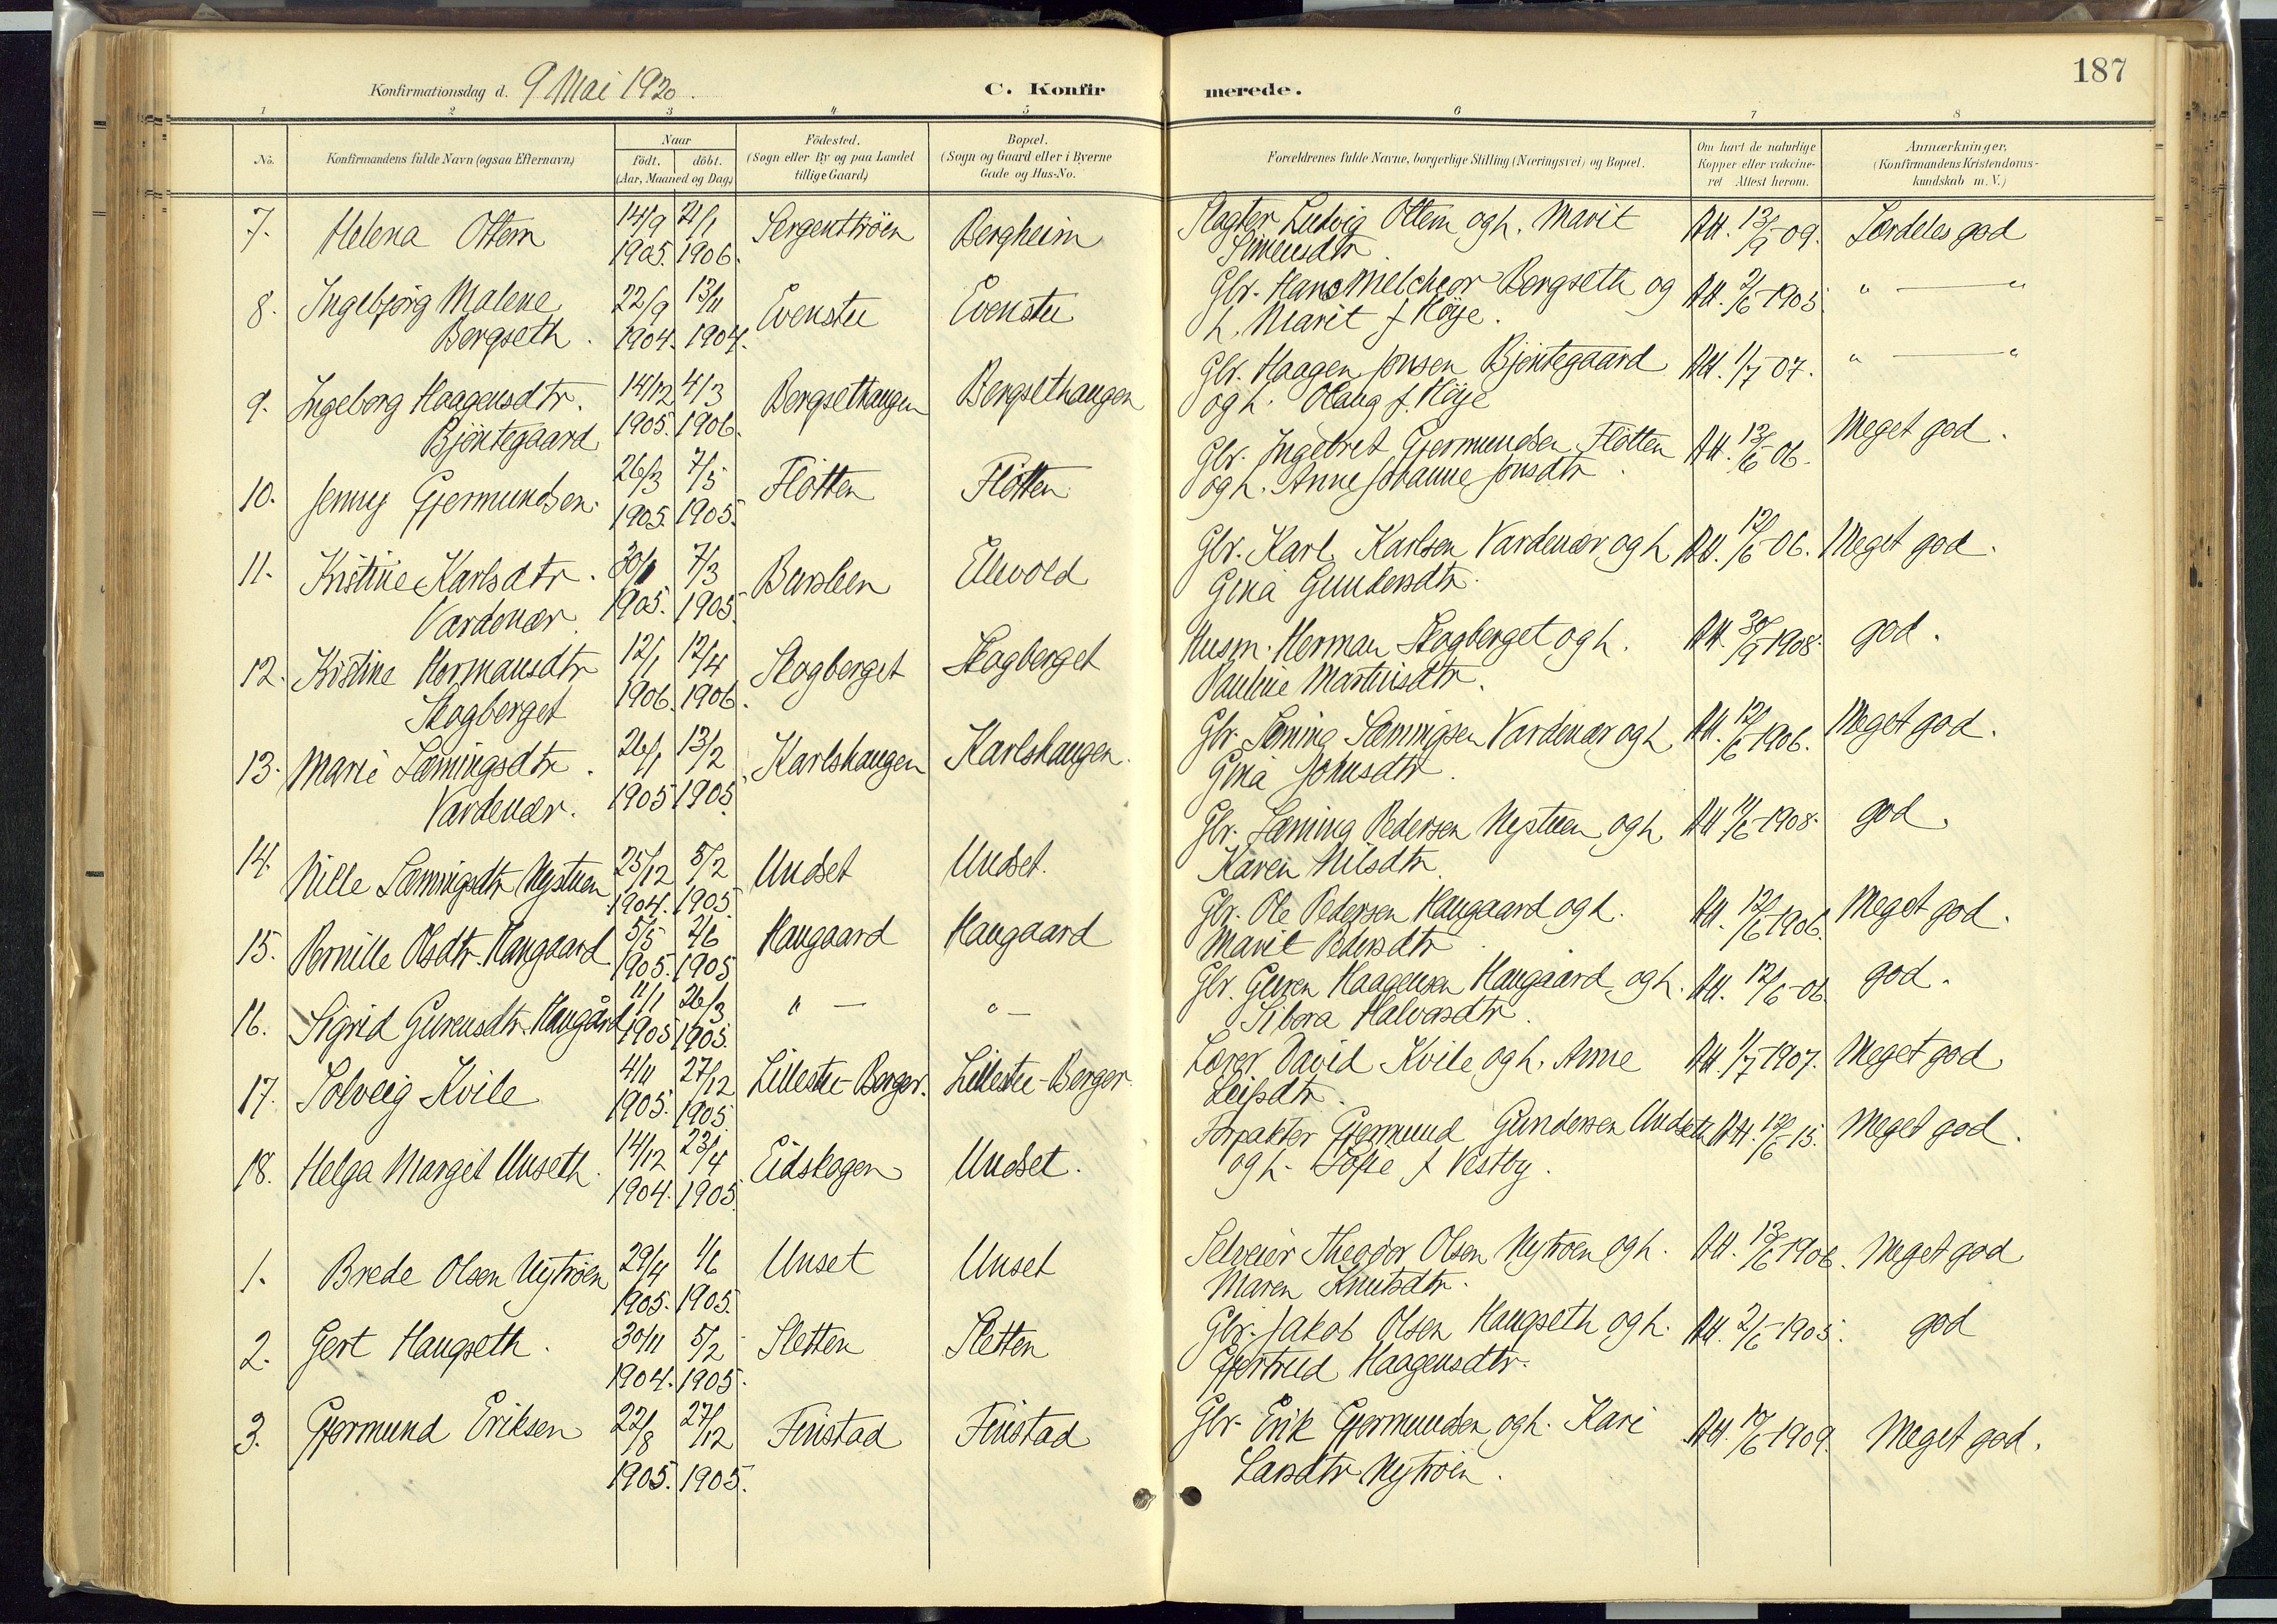 187
Konfirmationsdag d. 9 Mai 1920.
C. Konfirmerede.
1 2 3 4 5 6 7 8
No.
Konfirmandens fulde Navn (ogsaa Efternavn)
Naar
födt. döbt.
(Aar, Maaned og Dag)
Födested.
(Sogn eller By og paa Landet
tillige Gaard)
Bopæl.
(Sogn og Gaard eller i Byerne
Gade og Hus-No.
Forældrenes fulde Navne, borgerlige Stilling (Næringsvei) og Bopæl.
Om havt de naturlige
Kopper eller vakcine-
ret Attest herom.
Anmærkninger.
(Konfirmandens Kristendoms-
kundskab m. V.)
7. Helena Ottem 14/9 1905. 21/1 1906. Sergenttröen Bergheim
Slagter Ludvig Ottem og h. Marit
Simensdtr Att. 13/9-09. Særdeles god
8. Ingebjørg Malene
Bergseth. 22/9 1904. 13/11 1904. Evenstu Evenstu
Gbr. Hans Melchior Bergseth og
h. Marit f. Höye. Att. 2/6-1905. " — "
9. Ingeborg Haagensdtr.
Bjöntegaard 14/12 1905. 4/3 1906. Bergsethaugen Bergsethaugen
Gbr. Haagen Jonsen Bjöntegaard
og h. Olaug f. Höye Att. 1/7-07. " — "
10. Jenny Gjermundsen. 26/3 1905. 7/5 1905. Flötten Flötten
Gbr. Ingebret Gjermundsen Flötten
og h. Anne Johanne Jonsdtr. Att. 13/6-06. Meget god.
11. Kristine Karlsdtr.
Vardenær. 30/1 1905. 7/3 1905. Bursleen Ellevold
Gbr. Karl Karlsen Vardenær og h.
Gina Gundersdtr. Att. 12/6-06. Meget god.
12. Kristine Hermansdtr
Skogberget 12/1 1906. 12/4 1906. Skogberget Skogberget
Husm. Herman Skogberget og h.
Pauline Martinsdtr. Att. 30/9-1908. god.
13. Marie Sæmingsdtr.
Vardenær. 26/1 1905 13/2 1905. Karlshaugen Karlshaugen.
Gbr. Sæming Sæmingsen Vardenær og h.
Gina Johnsdtr. Att. 12/6 1906. Meget god.
14. Nille Sæmingsdtr Nystuen 25/12 1904. 5/2 1905. Undset Undset.
Gbr. Sæming Pedersen Nystuen og h.
Karen Nilsdtr. Att. 11/6-1908. god.
15. Pernille Olsdtr. Haugaard 5/5 1905. 4/6 1905 Haugaard Haugaard
Gbr. Ole Pedersen Haugaard og h.
Marit Pedersdtr Att. 12/6-1906. Meget god.
16. Sigrid Gurensdtr. Haugård 11/1 1905 26/3 1905. " — " —
Gbr. Guren Haagensen Haugaard og h.
Sibora Halvorsdtr. Att. 12/6-06. god.
17. Solveig Kvile 4/11 1905. 27/12 1905. Lillestu-Berger. Lillestu-Berger.
Lærer David Kvile og h. Anne
Leifsdtr. Att. 1/7-1907. Meget god
18. Helga Margit Unseth. 14/12 1904. 23/4 1905. Eidskogen Undset.
Forpakter Gjermund Gundersen Undseth
og h. Sofie f. Vestby. Att. 12/6-15. Meget god.
1. Brede Olsen Nytröen 29/4 1905. 4/6 1905. Unset Unset
Selveier Theodor Olsen Nytröen og h.
Maren Knutsdtr. Att. 13/6 1906. Meget god
2. Gert Haugseth. 30/11 1904. 5/2 1905. Sletten Sletten
Gbr. Jakob Olsen Haugseth og h.
Gjertrud Haagensdtr. Att. 2/6-1905. god
3. Gjermund Eriksen 22/8 1905. 27/12 1905. Finstad Finstad
Gbr. Erik Gjermundsen og h. Kari
Larsdtr Nytröen. Att. 10/6-1909. Meget god.